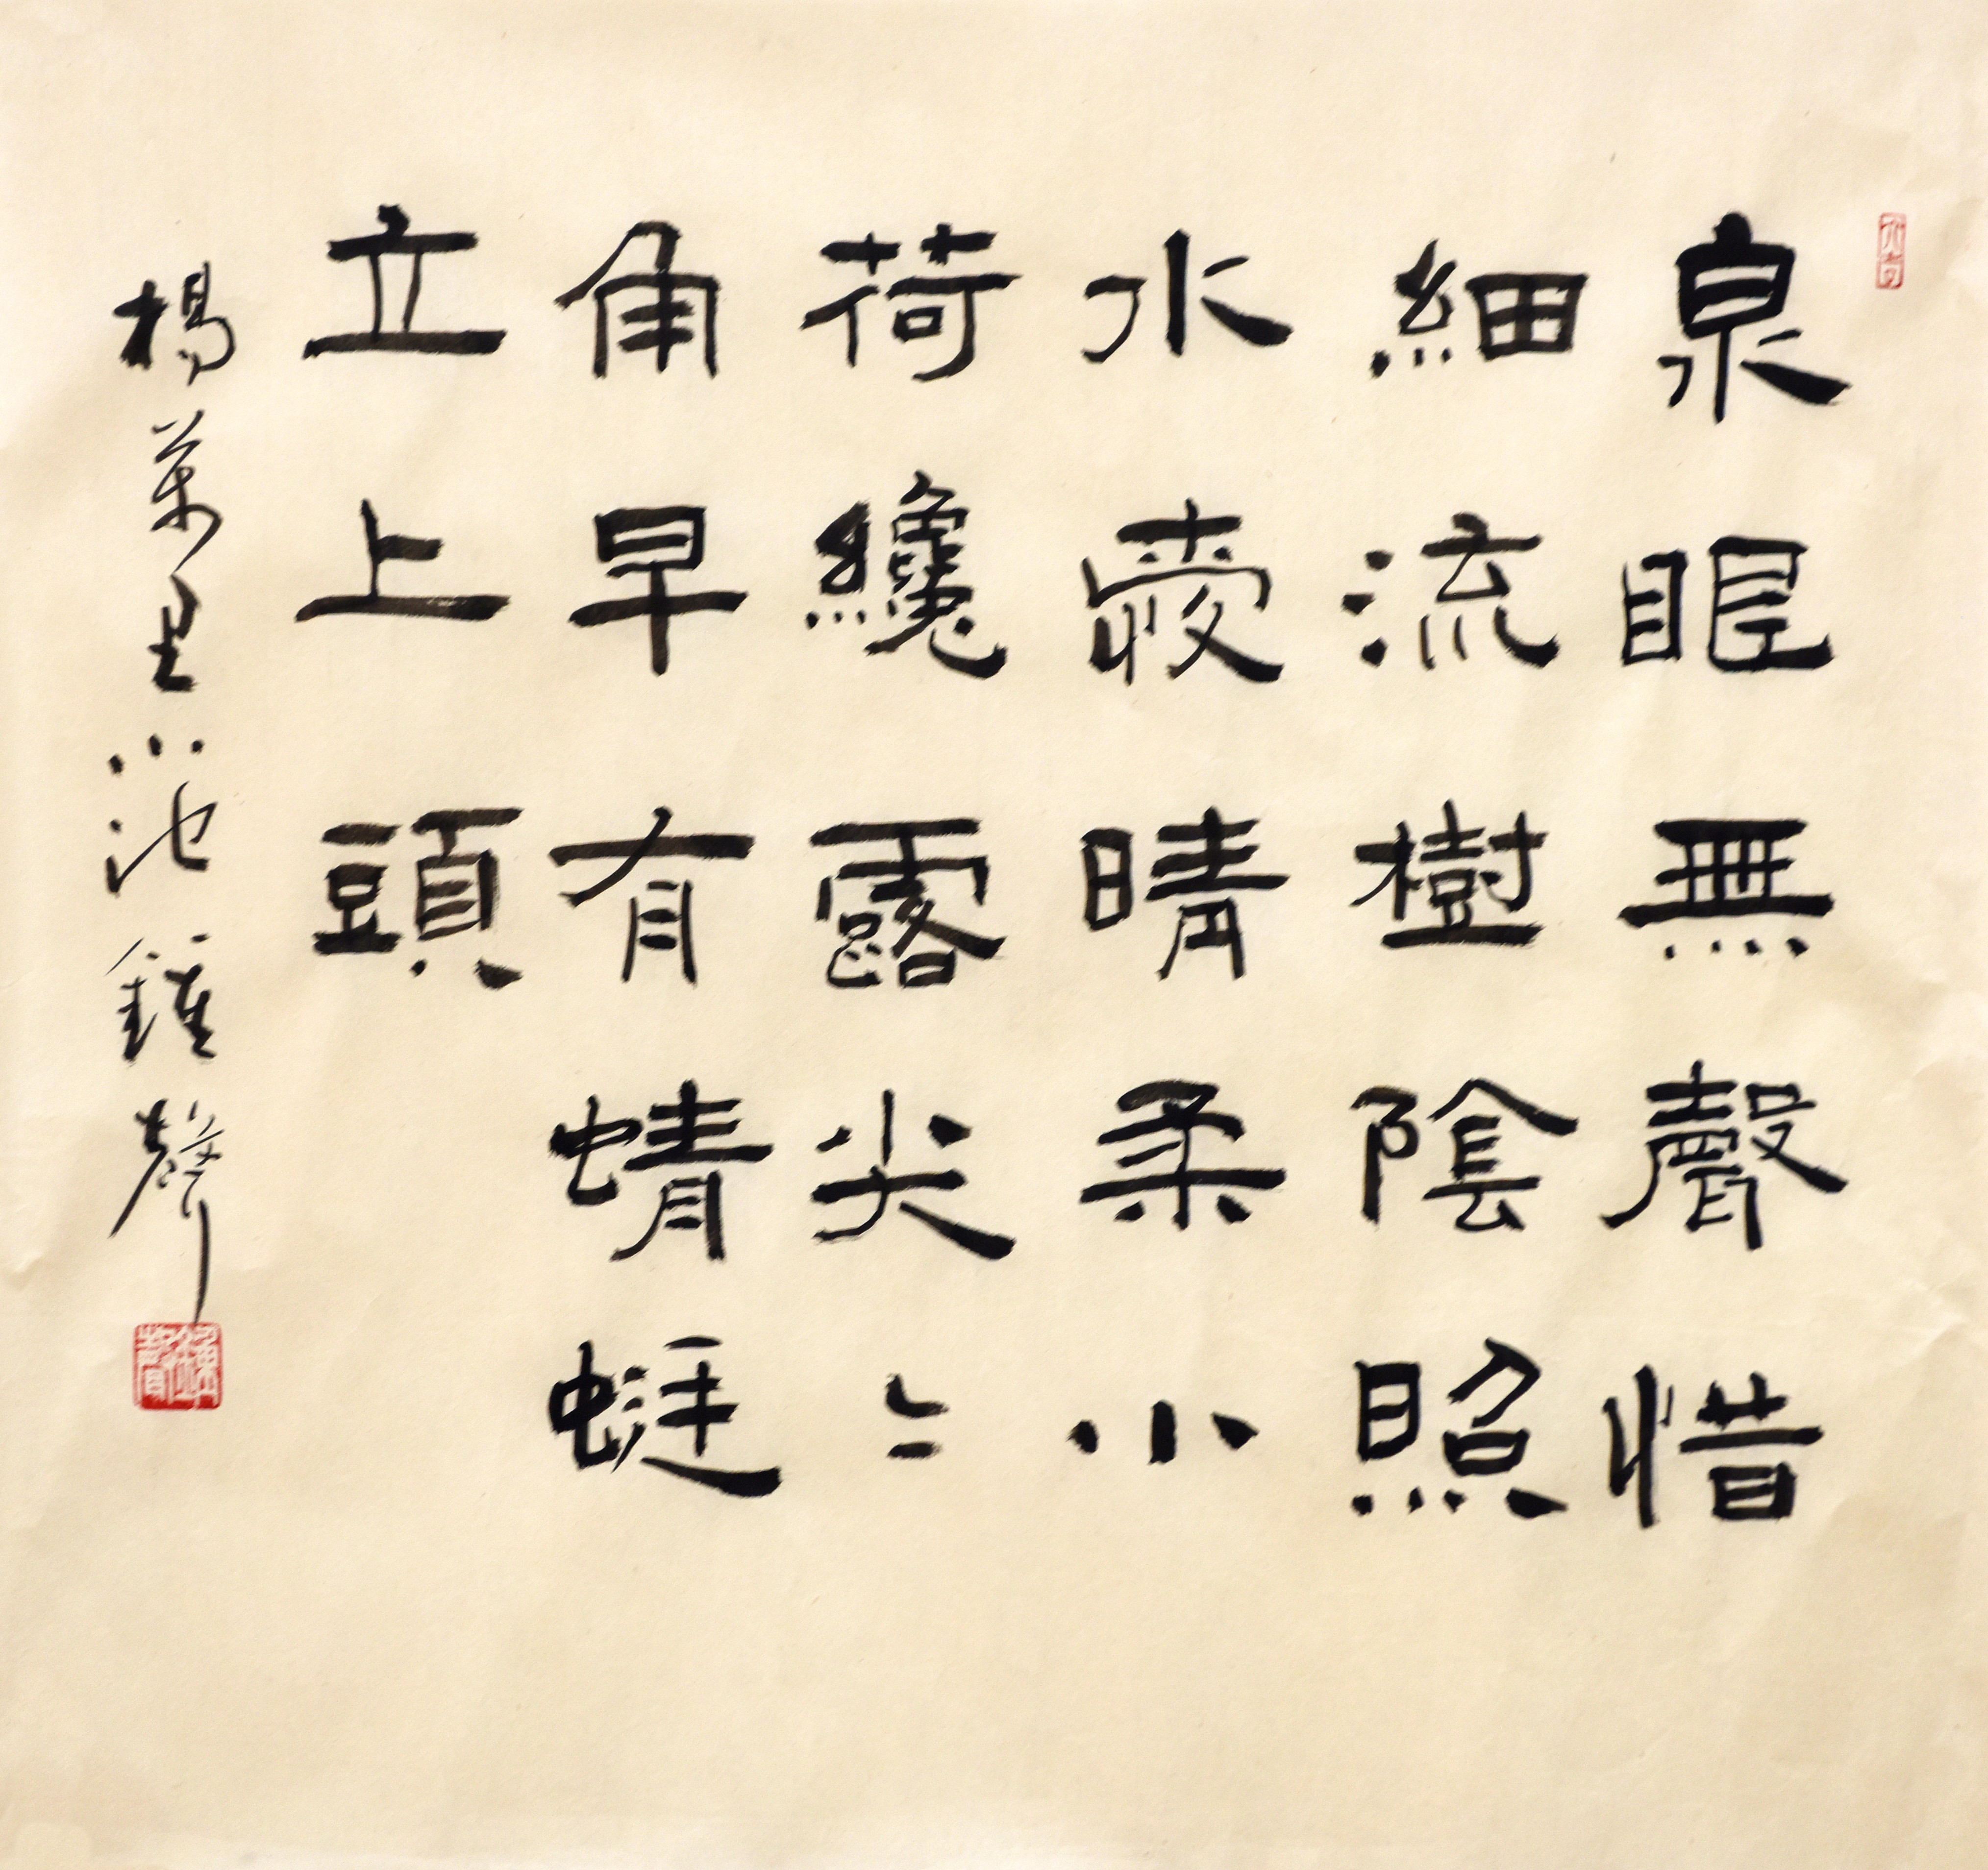 泉眼無聲惜
細流樹陰照
水愛晴柔小
荷纔露尖〻
角早有蜻蜓
立上頭
楊萬里小池鍾聲